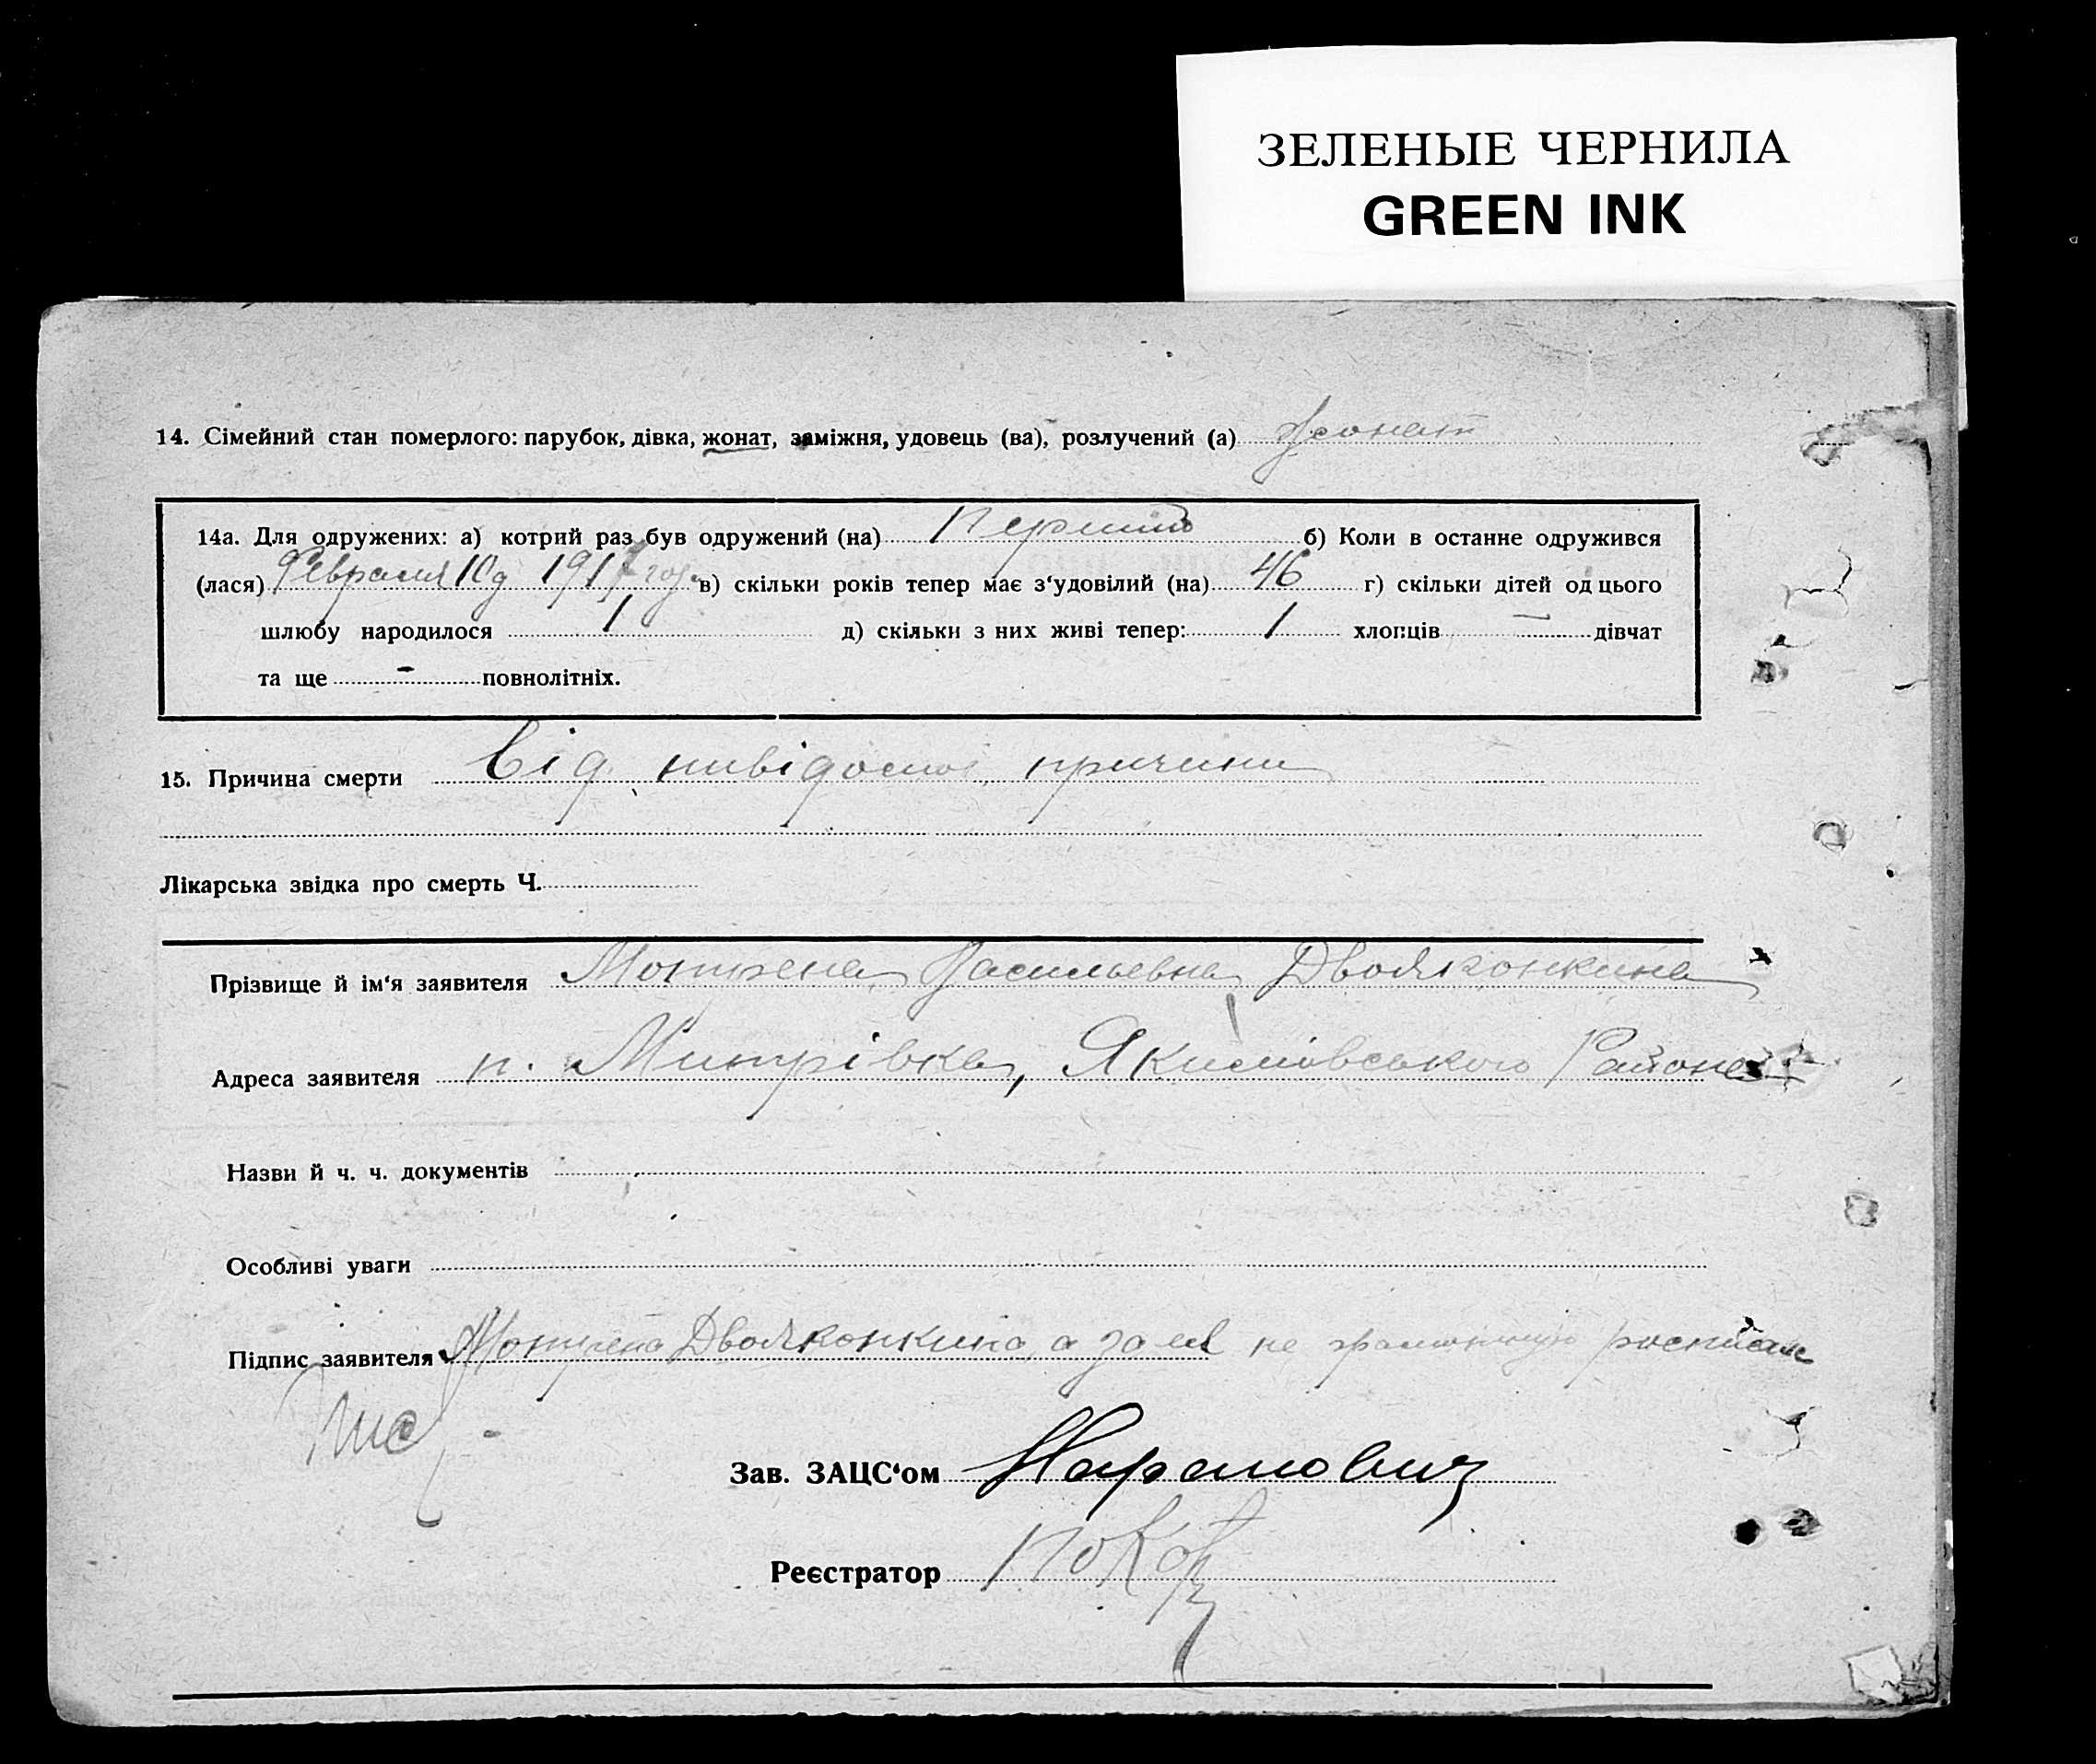 ЗЕЛЕНЫЕ ЧЕРНИЛА
GREEN INK
14. Сімейний стан померлого: парубок, дівка, жонат, заміжня, удовець (ва), розлучений (а) жонат
14а. Для одружених: а) котрий раз був одружений (на) перший б) Коли в останне одружився
(лася) Февраля 10д 1917 года в) скільки років тепер має з‘удовілий (на) 46 г) скільки дітей од цього
шлюбу народилося 1 д) скільки з них живі тепер: 1 хлопців — дівчат
та ще - повнолітніх.
15. Причина смерти Від невідомої причини
Лікарська звідка про смерть Ч.
Прізвище й ім‘я заявителя Мотрена Васильевна Двояконкина
Адреса заявителя п. Митрівка, Якимовського Району
Назви й ч. ч. документів
Особливі уваги
Підпис заявителя Мотрена Двояконкина, а за неї не грамотную
Зав. ЗАЦС‘ом
Реєстратор